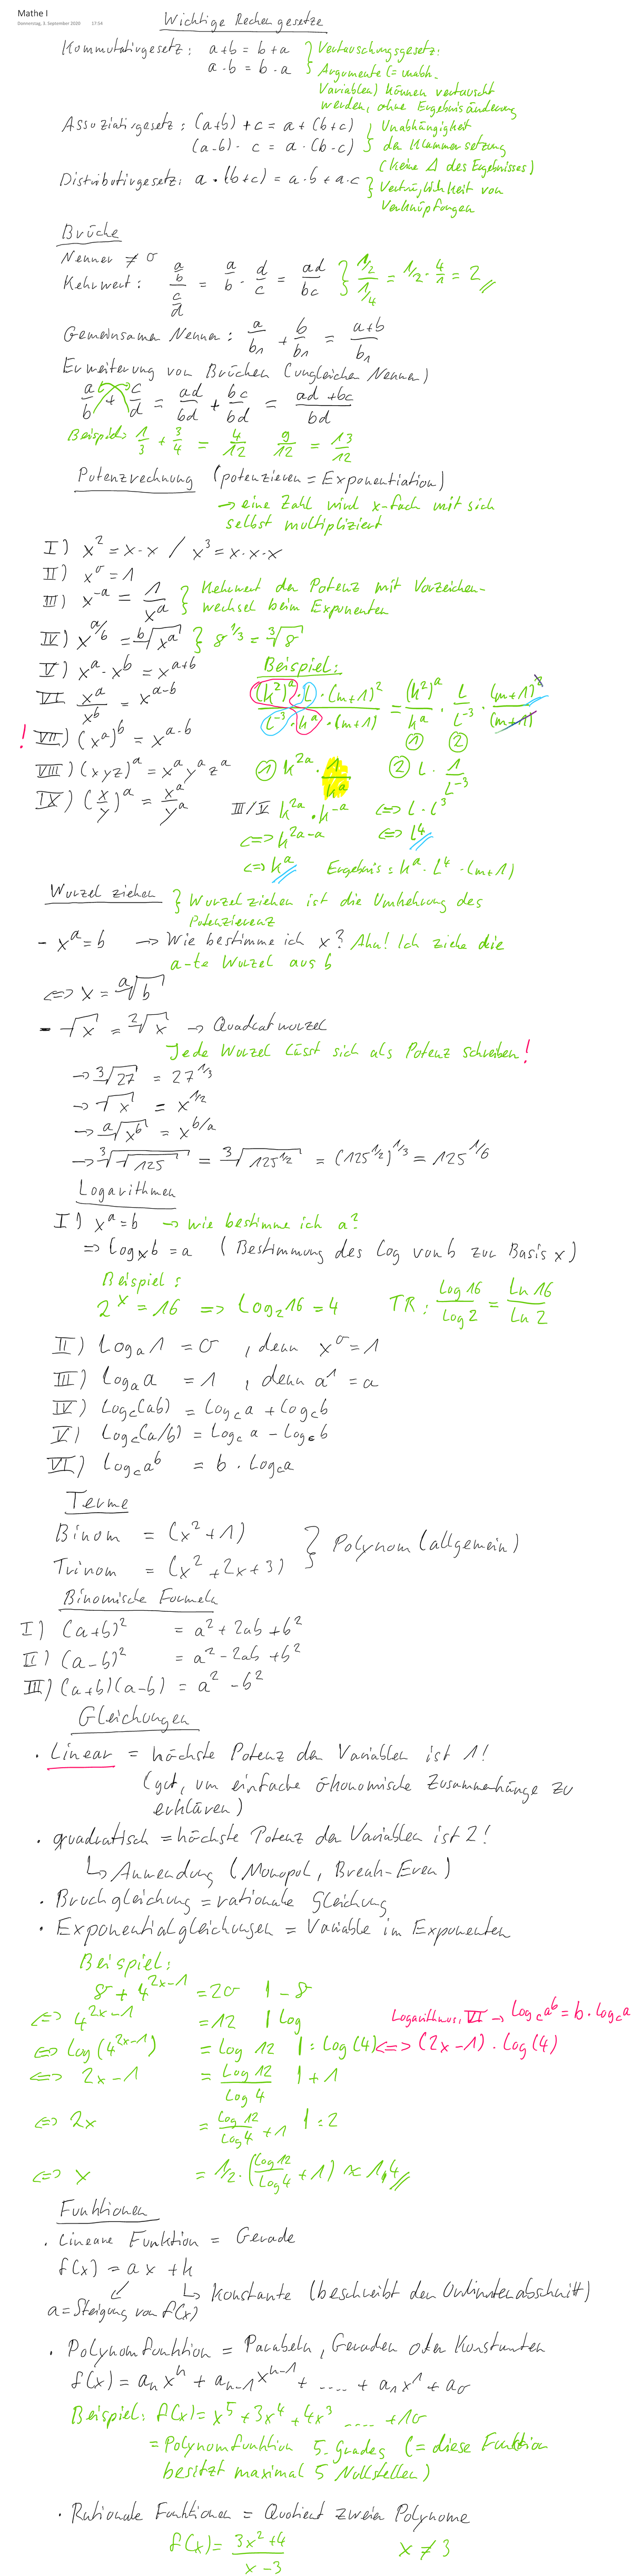 Mathe I
Donnerstag, 3. September 2020 17:54
Wichtige Rechengesetze
Kommutativgesetz: a+b = b+a } Vertauschungsgesetz:
a·b = b·a Argumente (= unabh.
Variablen) können vertauscht
werden, ohne Ergebnisänderung
Assoziativgesetz: (a+b)+c = a+(b+c) } Unabhängigkeit
(a·b)·c = a·(b·c) der Klammersetzung
(keine Δ des Ergebnisses)
Distributivgesetz: a·(b+c) = a·b+a·c } Verträglichkeit von
Verknüpfungen
Brüche
Nenner ≠ 0
Kehrwert: (a/b)/(c/d) = a/b · d/c = ad/bc } (1/2)/(1/4) = 1/2 · 4/1 = 2
Gemeinsamer Nenner: a/b₁ + b/b₁ = a+b/b₁
Erweiterung von Brüchen (ungleicher Nenner)
a/b + c/d = ad/bd + bc/bd = ad+bc/bd
Beispiel: 1/3 + 3/4 = 4/12 9/12 = 13/12
Potenzrechnung (potenzieren = Exponentiation)
→ eine Zahl wird x-fach mit sich
selbst multipliziert
I) x² = x·x / x³ = x·x·x
II) x⁰ = 1
III) x^-a = 1/x^a } Kehrwert der Potenz mit Vorzeichen-
wechsel beim Exponenten
IV) x^a/b = ᵇ√x^a } 8^1/3 = ³√8
V) x^a · x^b = x^a+b
VI x^a/x^b = x^a-b
! VII) (x^a)^b = x^a·b
VIII) (xyz)^a = x^a y^a z^a
IX) (x/y)^a = x^a/y^a
Beispiel:
(k²)^a · L · (m+1)² / L^-3 · k^a · (m+1) = (k²)^a/k^a · L/L^-3 · (m+1)²/(m+1)
① ②
① k^2a · 1/k^a ② L · 1/L^-3
III/V k^2a · k^-a ⇔ L · L³
⇔ k^2a-a ⇔ L⁴
⇔ k^a Ergebnis: k^a · L⁴ · (m+1)
Wurzel ziehen } Wurzelziehen ist die Umkehrung des
Potenzierenz
- x^a = b → Wie bestimme ich x? Aha! Ich ziehe die
a-te Wurzel aus b
⇔ x = ᵃ√b
- √x = ²√x → Quadratwurzel
Jede Wurzel lässt sich als Potenz schreiben!
→ ³√27 = 27^1/3
→ √x = x^1/2
→ ᵃ√x^b = x^b/a
→ ³√√125 = ³√125^1/2 = (125^1/2)^1/3 = 125^1/6
Logarithmen
I) x^a = b → wie bestimme ich a?
⇒ log_x b = a (Bestimmung des Log von b zur Basis x)
Beispiel:
2^x = 16 ⇒ Log₂16 = 4 TR: Log 16/Log 2 = Ln 16/Ln 2
II) Log_a 1 = 0 , denn x⁰ = 1
III) Log_a a = 1 , denn a¹ = a
IV) Log_c(ab) = Log_c a + Log_c b
V) Log_c(a/b) = Log_c a - Log_c b
VI) Log_c a^b = b · Log_c a
Terme
Binom = (x²+1) } Polynom (allgemein)
Trinom = (x²+2x+3)
Binomische Formeln
I) (a+b)² = a²+2ab+b²
II) (a-b)² = a²-2ab+b²
III) (a+b)(a-b) = a²-b²
Gleichungen
· Linear = höchste Potenz der Variablen ist 1!
(gut, um einfache ökonomische Zusammenhänge zu
erklären)
· quadratisch = höchste Potenz der Variablen ist 2!
↳ Anwendung (Monopol, Break-Even)
· Bruchgleichung = rationale Gleichung
· Exponentialgleichungen = Variable im Exponenten
Beispiel:
8 + 4^2x-1 = 20 | -8
⇔ 4^2x-1 = 12 | Log
Logarithmus, VI → Log_c a^b = b · Log_c a
⇔ Log(4^2x-1) = Log 12 | : Log(4) ⇔ (2x-1) · Log(4)
⇔ 2x-1 = Log 12/Log 4 | +1
⇔ 2x = Log 12/Log 4 +1 | : 2
⇔ x = 1/2 · (Log 12/Log 4 + 1) ≈ 1,4
Funktionen
· Lineare Funktion = Gerade
f(x) = ax + k
↳ Konstante (beschreibt den Ordinatenabschnitt)
a = Steigung von f(x)
· Polynomfunktion = Parabeln, Geraden oder Konstanten
f(x) = aₙxⁿ + aₙ₋₁xⁿ⁻¹ + .... + a₁x¹ + a₀
Beispiel: f(x) = x⁵ + 3x⁴ + 4x³ .... + 10
= Polynomfunktion 5. Grades (= diese Funktion
besitzt maximal 5 Nullstellen)
· Rationale Funktionen = Quotient zweier Polynome
f(x) = 3x²+4/x-3 x ≠ 3